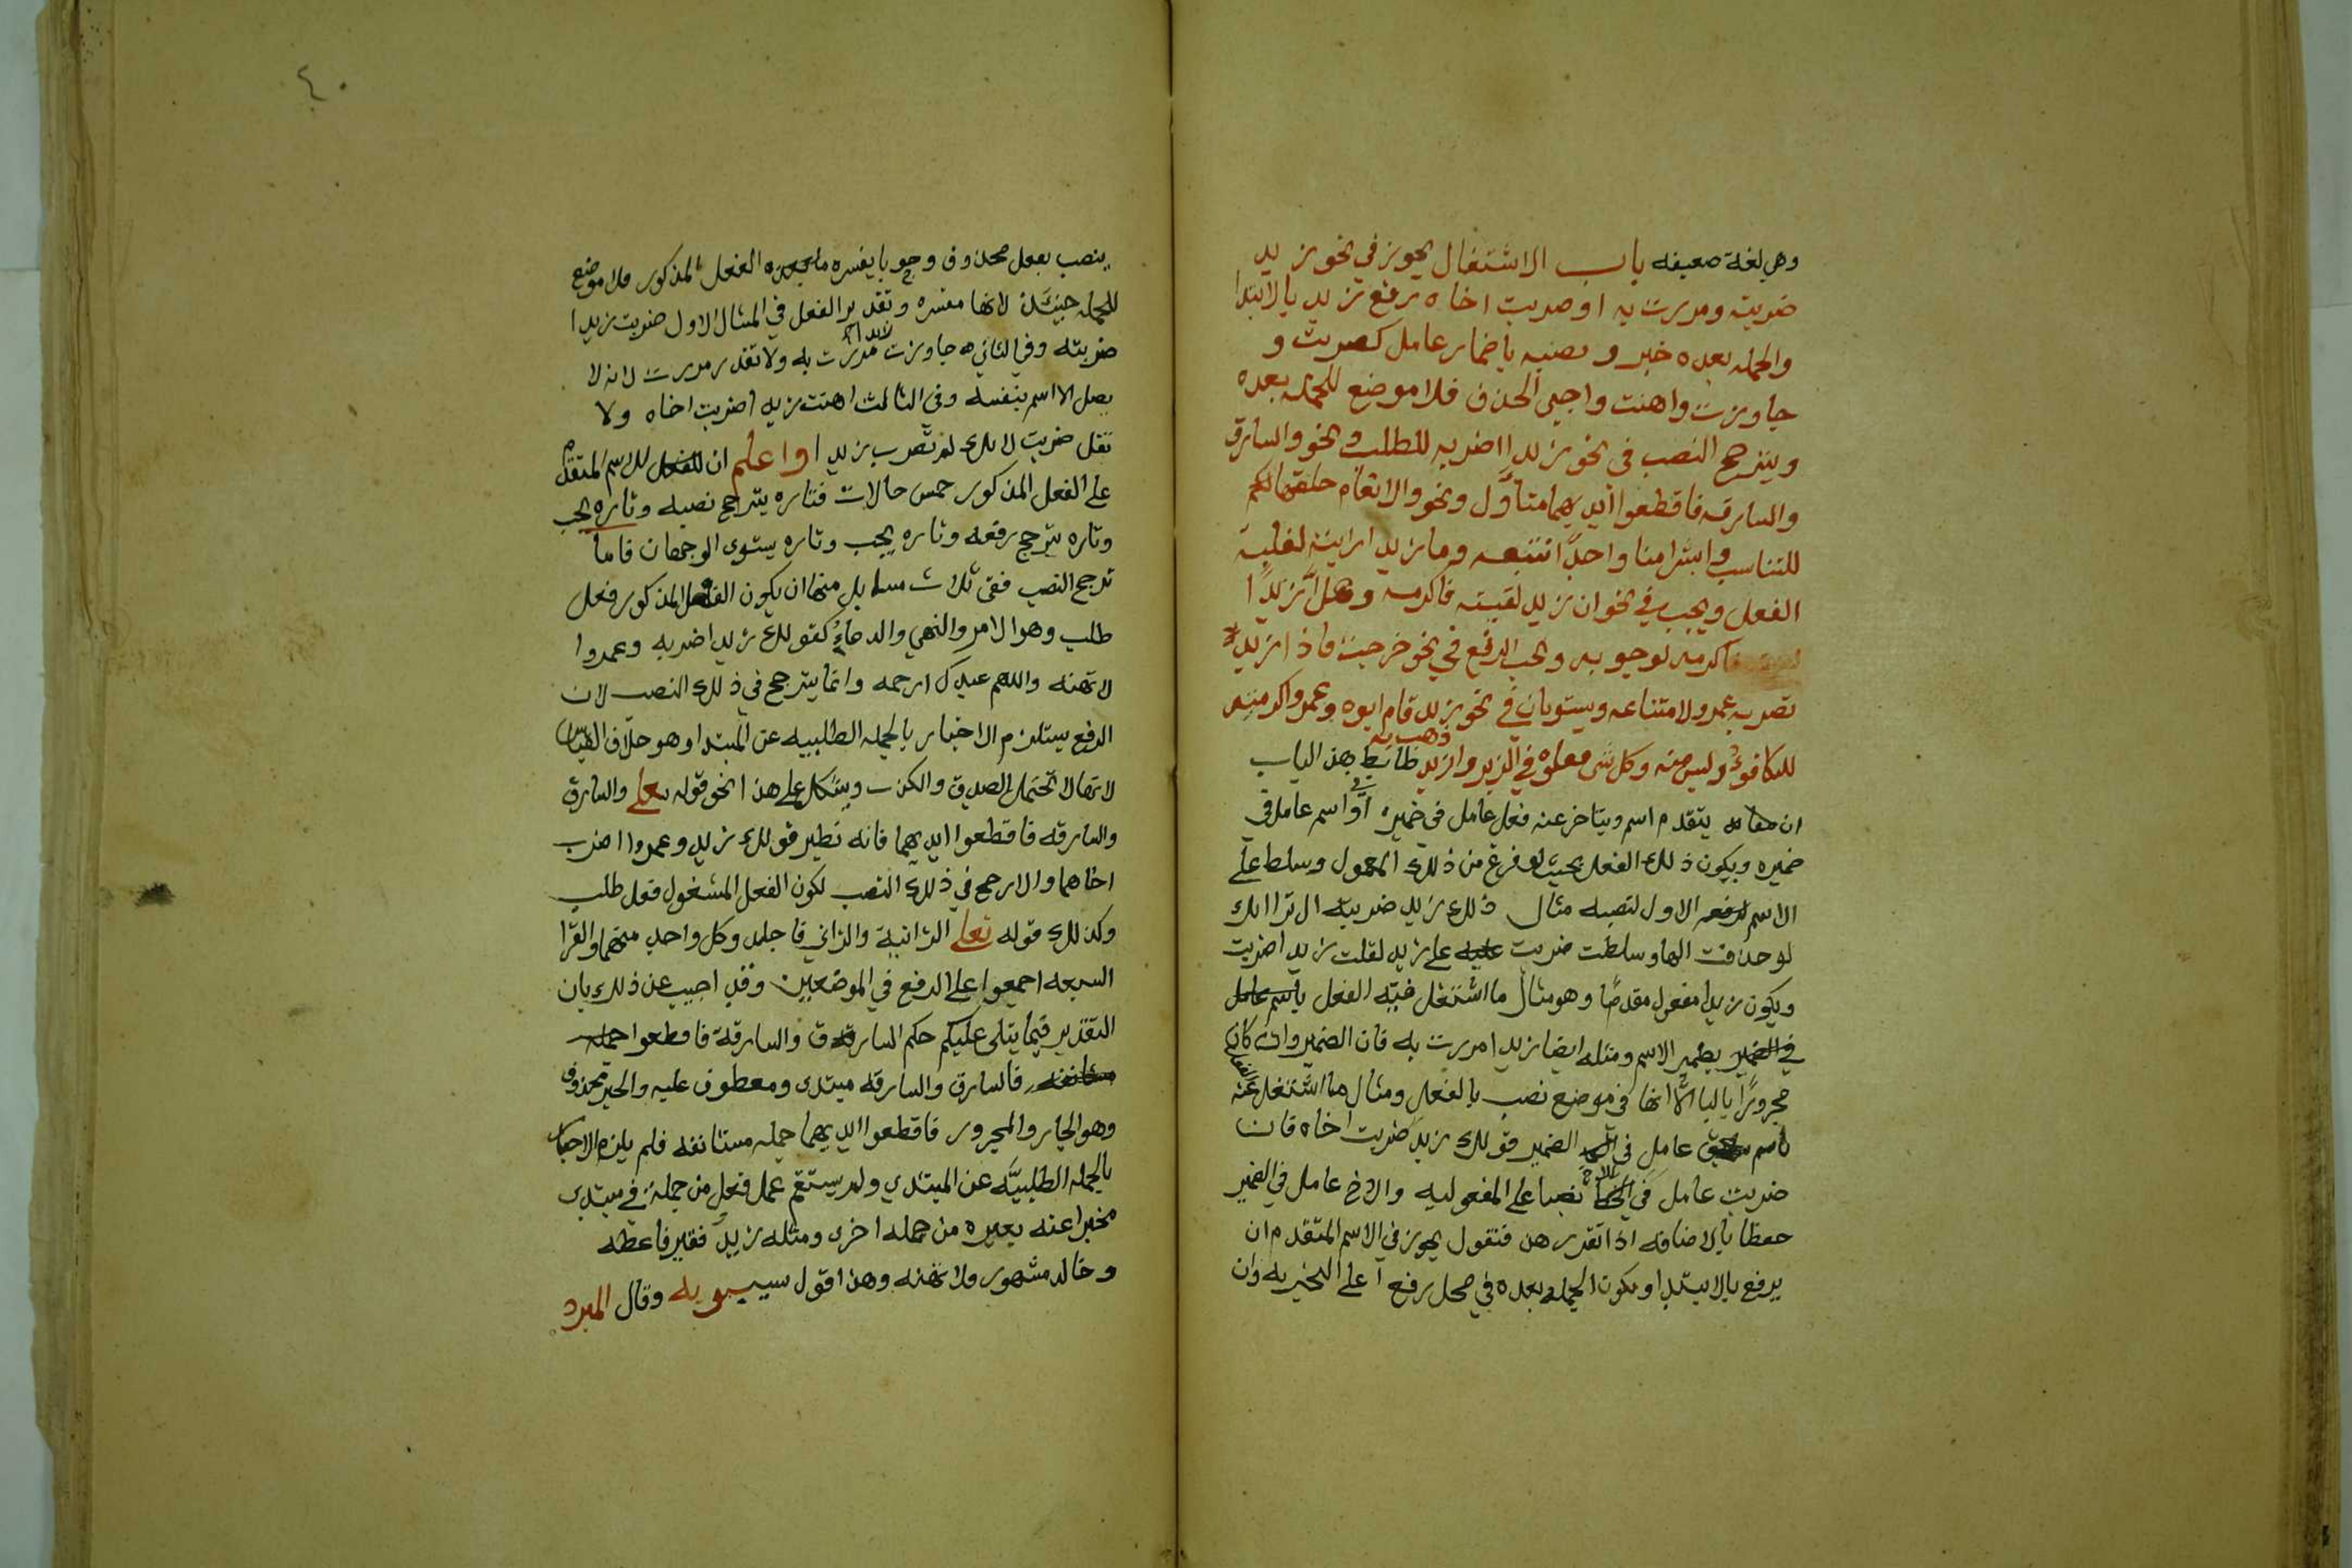 وهي لغة ضعيفه باب الاشتغال يجوز في نحو زيد
ضربته ومررت به او ضربت اخاه رفع زيد بالابتدا
والجمله بعده خبر و نصبه باضمار عامل كضربت و
جاوزت واهنت واجبي الحذف فلا موضع للجمله بعده
ويترجح النصب في نحو زيدا اضربه للطلب ونحو والسارق
والسارقه فاقطعوا ايديهما متاول ونحو والانعام خلقها لكم
للتناسب وابشرا منا واحدًا نتبعه وما زيدا رايته لغلبة
الفعل ويجب في نحو ان زيدا لقيته فاكرمه وهلّا زيدًا
فاكرمه لوجوبه ويجب الرفع في نحو خرجت فاذا زيد
يضربه عمرو لامتناعه ويستويان في نحو زيد قام ابوه وعمرو اكرمته
للتكافؤ وليس منه وكل شى فعلوه في الزبر وازيد ذهب به ظابط هذا الباب
ان يتقدم اسم ويتاخر عنه فعل عامل في ضميره او اسم عامل في
ضميره ويكون ذلك الفعل بحيث لو فرغ من ذلك المعمول وسلط على
الاسم الاول لنصبه مثال ذلك زيد ضربته الا ترا انك
لو حذفت الها وسلطت ضربت على زيد لقلت زيدا ضربت
ويكون زيدا مفعول مقدمًا وهو مثال ما اشتغل فيه الفعل
بضمير الاسم ومثله ايضا زيدا مررت به فان الضمير وان كان
مجرورًا بالبا الا انها في موضع نصب بالفعل ومثال ما اشتغل عنه الفعل
باسم عامل في الضمير قولك زيد ضربت اخاه فان
ضربت عامل في الاخ نصبا على المفعوليه والاخ عامل في الضمير
خفظا بالاضافه اذا تقرر هذا فتقول يجوز في الاسم المتقدم ان
يرفع بالابتدا وتكون الجمله بعده في محل رفع على الخبريه وان
٤٠
ينصب بفعل محذوف وجوبا يفسره الفعل المذكور فلا موضع
للجمله حينئذ لانها مفسره وتقدير الفعل في المثال الاول ضربت زيدا
ضربته وفي الثاني جاوزت زيدا مررت به ولا تقدر مررت لانه لا
يصل الاسم بنفسه وفي الثالث اهنت زيدا ضربت اخاه ولا
تقل ضربت لانك لم تضرب زيدا واعلم ان للاسم المتقدم
على الفعل المذكور خمس حالات فتاره يترجح نصبه وتاره يجب
وتاره يترجح رفعه وتاره يجب وتاره يستوى الوجهان فاما
ترجح النصب ففي ثلاث مسايل منها ان يكون الفعل المذكور فعل
طلب وهو الامر والنهي والدعاء كقولك زيد اضربه وعمروا
لا تهنه واللهم عبدك ارحمه وانما يترجح في ذلك النصب لان
الرفع يستلزم الاخبار بالجمله الطلبيه عن المبتدا وهو خلاف القياس
لانها لا تحتمل الصدق والكذب ويشكل على هذا نحو قوله تعلى والسارق
والسارقه فاقطعوا ايديهما فانه نظير قولك زيد وعمروا اضرب
اخاهما والارجح في ذلك النصب لكون الفعل المشغول فعل طلب
وكذلك قوله تعلى الزانية والزاني فاجلدو كل واحد منهما والقرا
السبعه اجمعوا على الرفع في الموضعين وقد اجيب عن ذلك بان
التقدير فيما يتلى عليكم حكم السارق والسارقة فاقطعوا
فالسارق والسارقه مبتدى ومعطوف عليه والخبر محذوف
وهو الجار والمجرور فاقطعوا ايديهما جمله مستانفه فلم يلزم الاخبار
بالجمله الطلبيّه عن المبتدي ولم يستقم عمل فعل من جملة في مبتدى
مخبرا عنه بغيره من جمله اخرى ومثله زيد فقير فاعطه
وخالد مشهور فلا تهنه وهذا قول سيبويه وقال المبرد